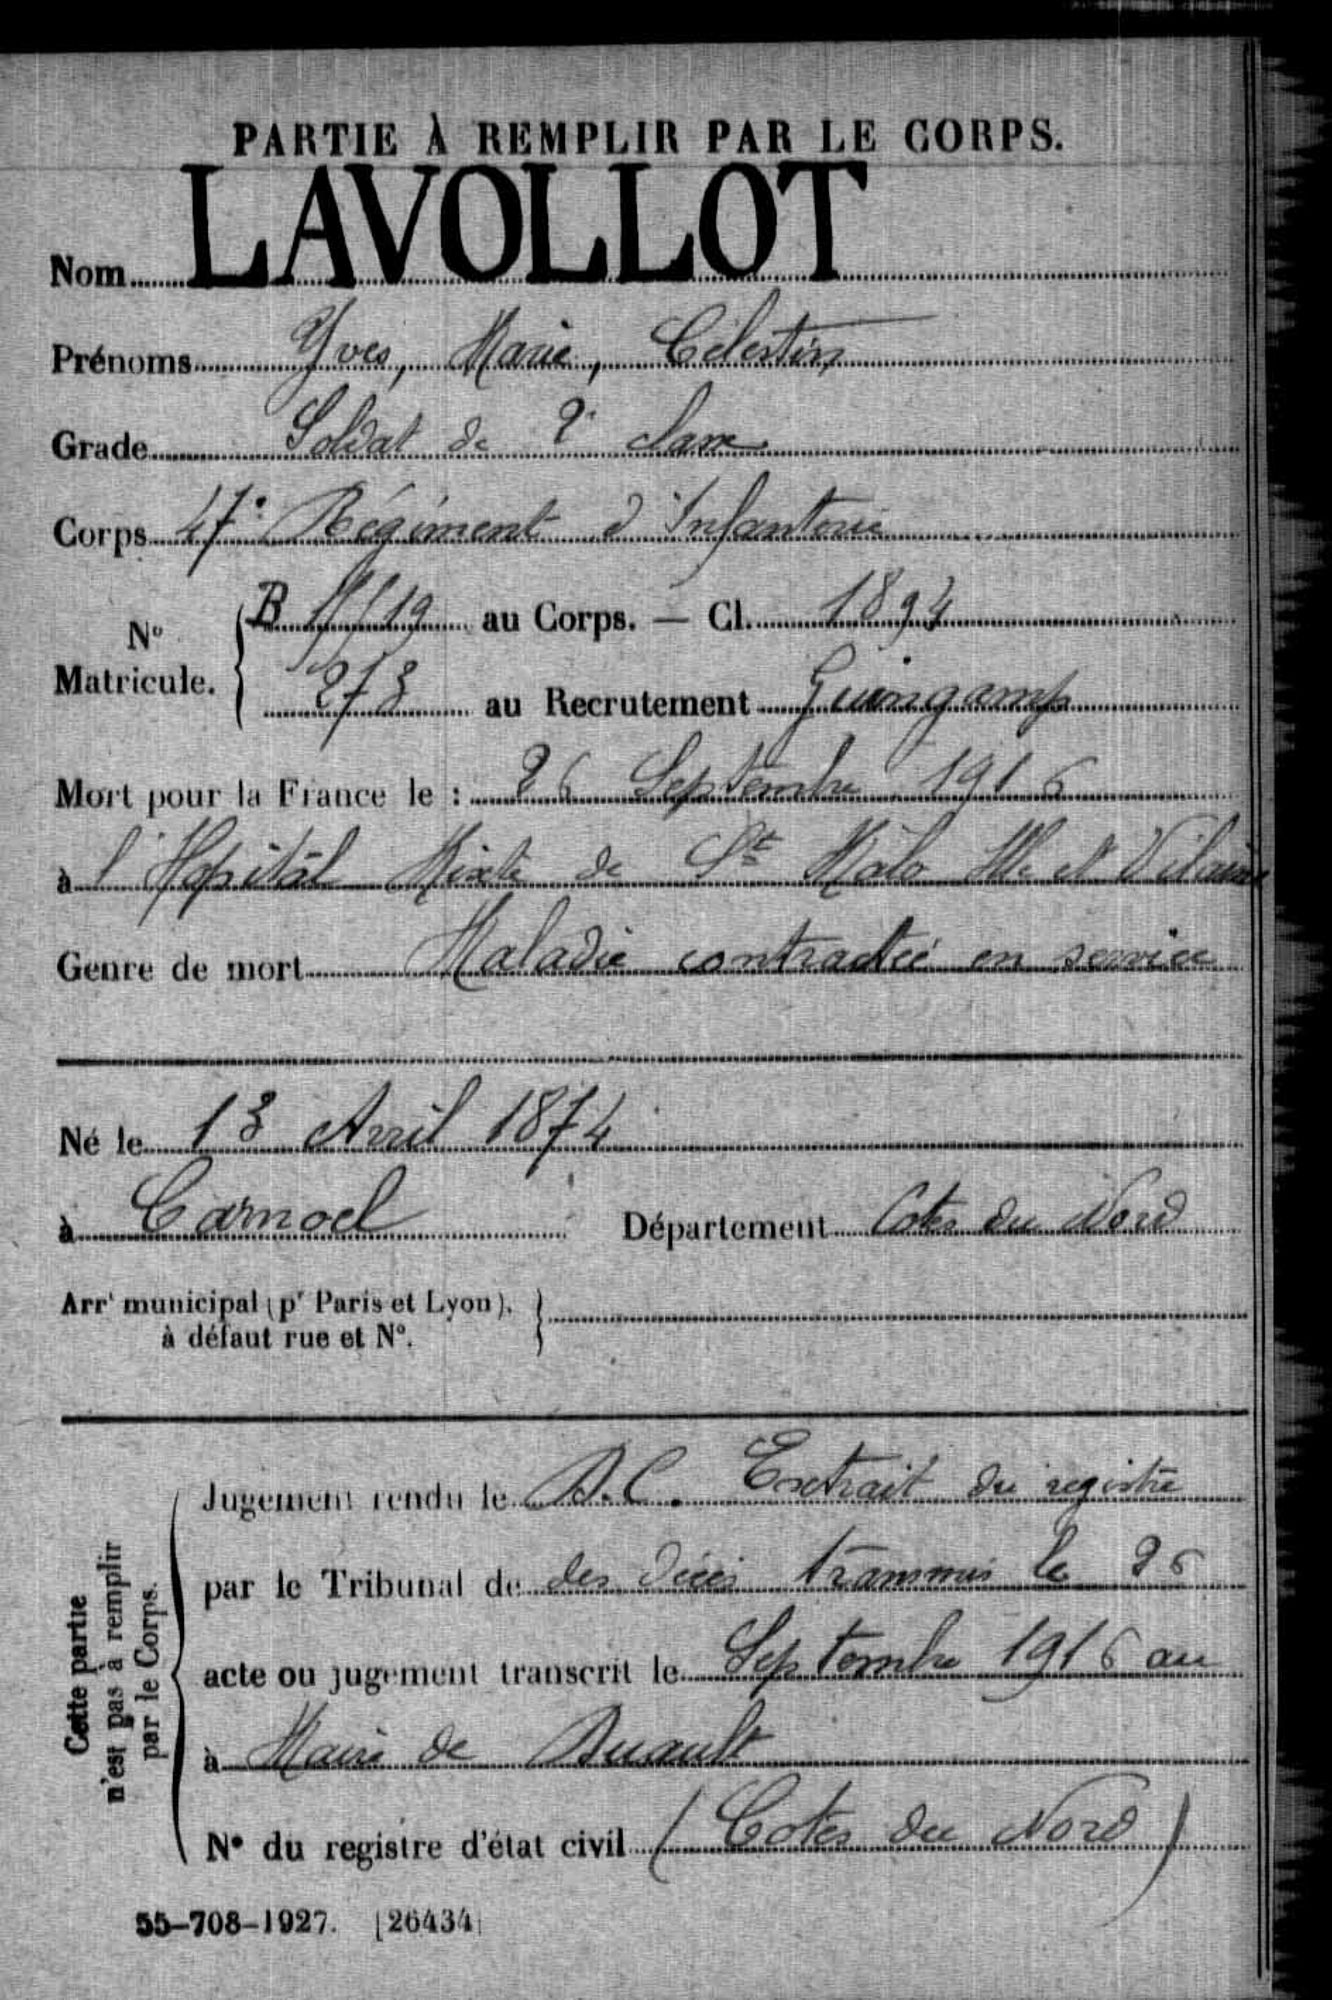 PARTIE À REMPLIR PAR LE CORPS.
Nom LAVOLLOT
Prénoms Yves, Marie, Célestin
Grade Soldat de 2e classe
Corps 47e Régiment d'Infanterie
N° Matricule. B 11/19 au Corps. — Cl. 1894
273 au Recrutement Guingamp
Mort pour la France le : 26 Septembre 1916
à l'Hopital Mixte de St Malo Ille et Vilaine
Genre de mort Maladie contractée en service
Né le 13 Avril 1874
à Carnoel Département Cotes du Nord
Arrt municipal (pr Paris et Lyon),
à défaut rue et N°.
Cette partie
n'est pas à remplir
par le Corps.
Jugement rendu le D.C. Extrait du registre
par le Tribunal de des décès transmis le 26
acte ou jugement transcrit le Septembre 1916 au
à Maire de Duault
N° du registre d'état civil (Cotes du Nord)
55-708-1927. [26434]